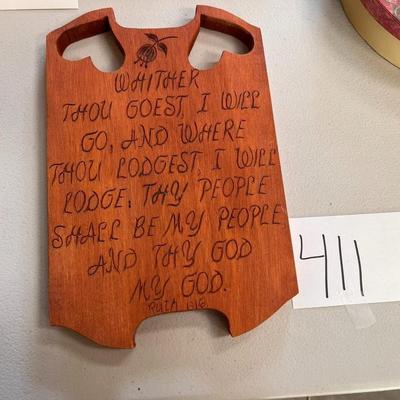 WHITHER
THOU GOEST, I WILL
GO, AND WHERE
THOU LODGEST, I WILL
LODGE; THY PEOPLE
SHALL BE MY PEOPLE,
AND THY GOD
MY GOD.
RUTH 1:16
411